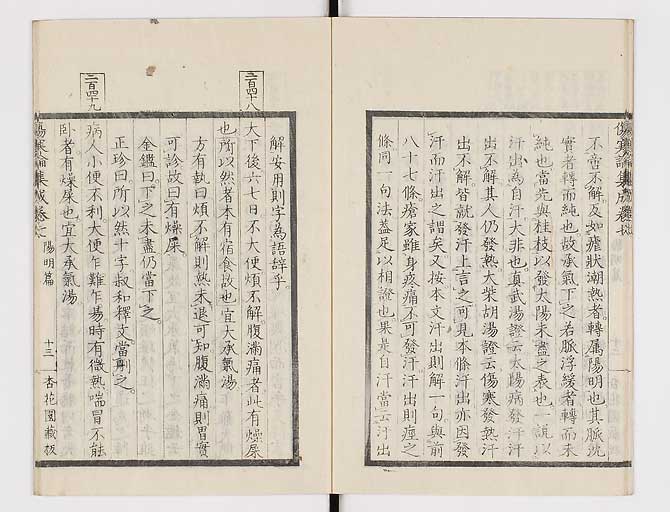 傷寒論集成卷七
陽明篇
不啻不解、及如瘧狀潮熱者、轉屬陽明也、其脈沈
實者轉而純也、故承氣下之、若脈浮緩者轉而未
純也、當先與桂枝以發太陽未盡之表也、一說以
汗出為自汗大非也、真武湯證云太陽病發汗汗
出不解、其人仍發熱、大柴胡湯證云傷寒發熱汗
出不解、皆就發汗上言之、可見本條汗出亦因發
汗而汗出之謂矣、又按本文汗出則解一句、與前
八十七條瘡家雖身疼痛不可發汗汗出則痓之
條同一句法、蓋足以相證也、果是自汗當云汗出
解安用則字為語辭乎、
三百四十八
大下後六七日不大便煩不解腹滿痛者此有燥屎
也所以然者本有宿食故也宜大承氣湯
方有執曰煩不解則熱未退可知腹滿痛則胃實
可診故曰有燥屎、
金鑑曰下之未盡仍當下之、
正珍曰所以然十字叔和釋文當刪之、
三百四十九
病人小便不利大便乍難乍易時有微熱喘冒不能
臥者有燥屎也宜大承氣湯
傷寒論集成卷七
陽明篇
十三
杏花園藏板